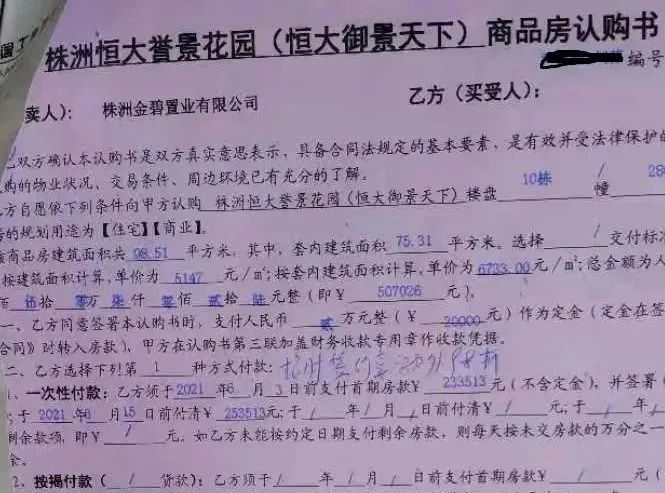 株洲恒大誉景花园（恒大御景天下）商品房认购书
编号
卖人）： 株洲金碧置业有限公司 乙方（买受人）：
乙双方确认本认购书是双方真实意思表示，具备合同法规定的基本要素，是有效并受法律保护的
购的物业状况、交易条件、周边环境已有充分的了解。
方自愿依下列条件向甲方认购 株洲恒大誉景花园（恒大御景天下）楼盘 10栋 / 幢 28
的规划用途为【住宅】【商业】。
商品房建筑面积共 98.51 平方米，其中，套内建筑面积 75.31 平方米。选择 / 交付标准
按建筑面积计算，单价为 5147 元/㎡；按套内建筑面积计算，单价为 6733.00 元/㎡；总金额为人
佰 伍拾 零万 柒仟 零佰 贰拾 陆元整（即￥ 507026 元）。
一、乙方同意签署本认购书时，支付人民币 贰万元整（￥ 20000元）作为定金（定金在签
合同》时转入房款），甲方在认购书第三联加盖财务收款专用章作收款凭据。
二、乙方选择下列第 1 种方式付款：
1、一次性付款：乙方须于2021 年6 月 3 日前支付首期房款￥ 233513元（不含定金），并签署《
；于 2021 年6 月15 日前付清￥ 253513元；于 / 年 / 月 / 日前付清￥ / 元；于 / 年 /
剩余款项，即￥ / 元。如乙方未能按约定日期支付剩余房款，则每天按未交房款的万分之一
金。
2、按揭付款（ / 贷款）：乙方须于 / 年 / 月 / 日前支付首期房款￥ / 元（